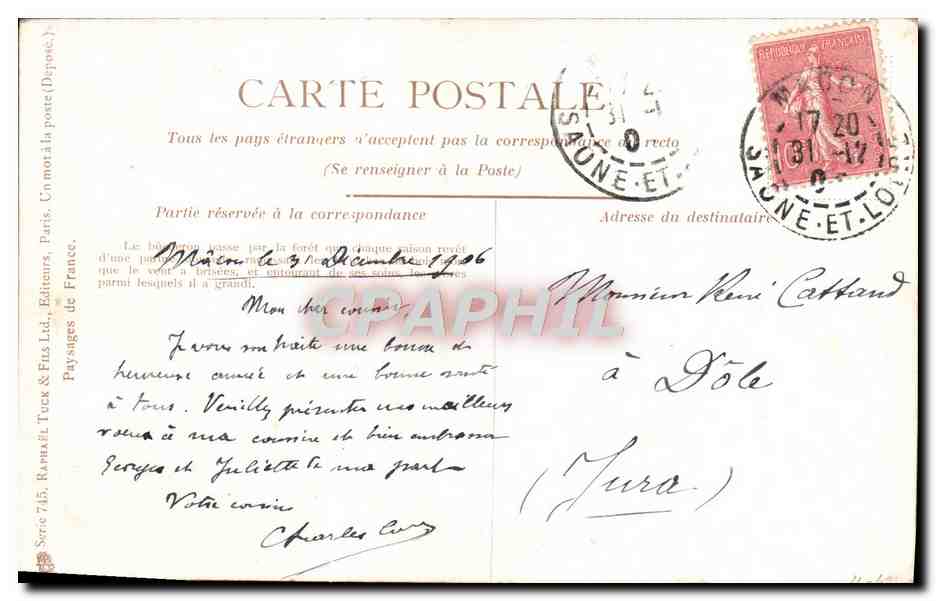 CARTE POSTALE
Tous les pays étrangers n'acceptent pas la correspondance au recto
(Se renseigner à la Poste)
Partie réservée à la correspondance
Adresse du destinataire
Le bûcheron passe par la forêt que chaque saison revêt
d'une
que le vent a brisées, et entourant de ses soins, les arbres
parmi lesquels il a grandi.
Mâcon le 31 Decembre 1906
Mon cher cousin,
Je vous souhaite une bonne et
heureuse année et une bonne santé
à tous. Veuillez présenter mes meilleurs
voeux à ma cousine et bien embrasser
Georges et Juliette de ma part
Votre cousin
Charles
Monsieur René Cattand
à Dôle
(Jura)
REPUBLIQUE FRANÇAISE
10
MACON
17 20
31 -12
SAONE-ET-LOIRE
31 -1
SAONE-ET-
CPAPHIL
Serie 745. RAPHAËL TUCK & FILS LTD., Editeurs, Paris. Un mot à la poste (Déposé.)
Paysages de France.